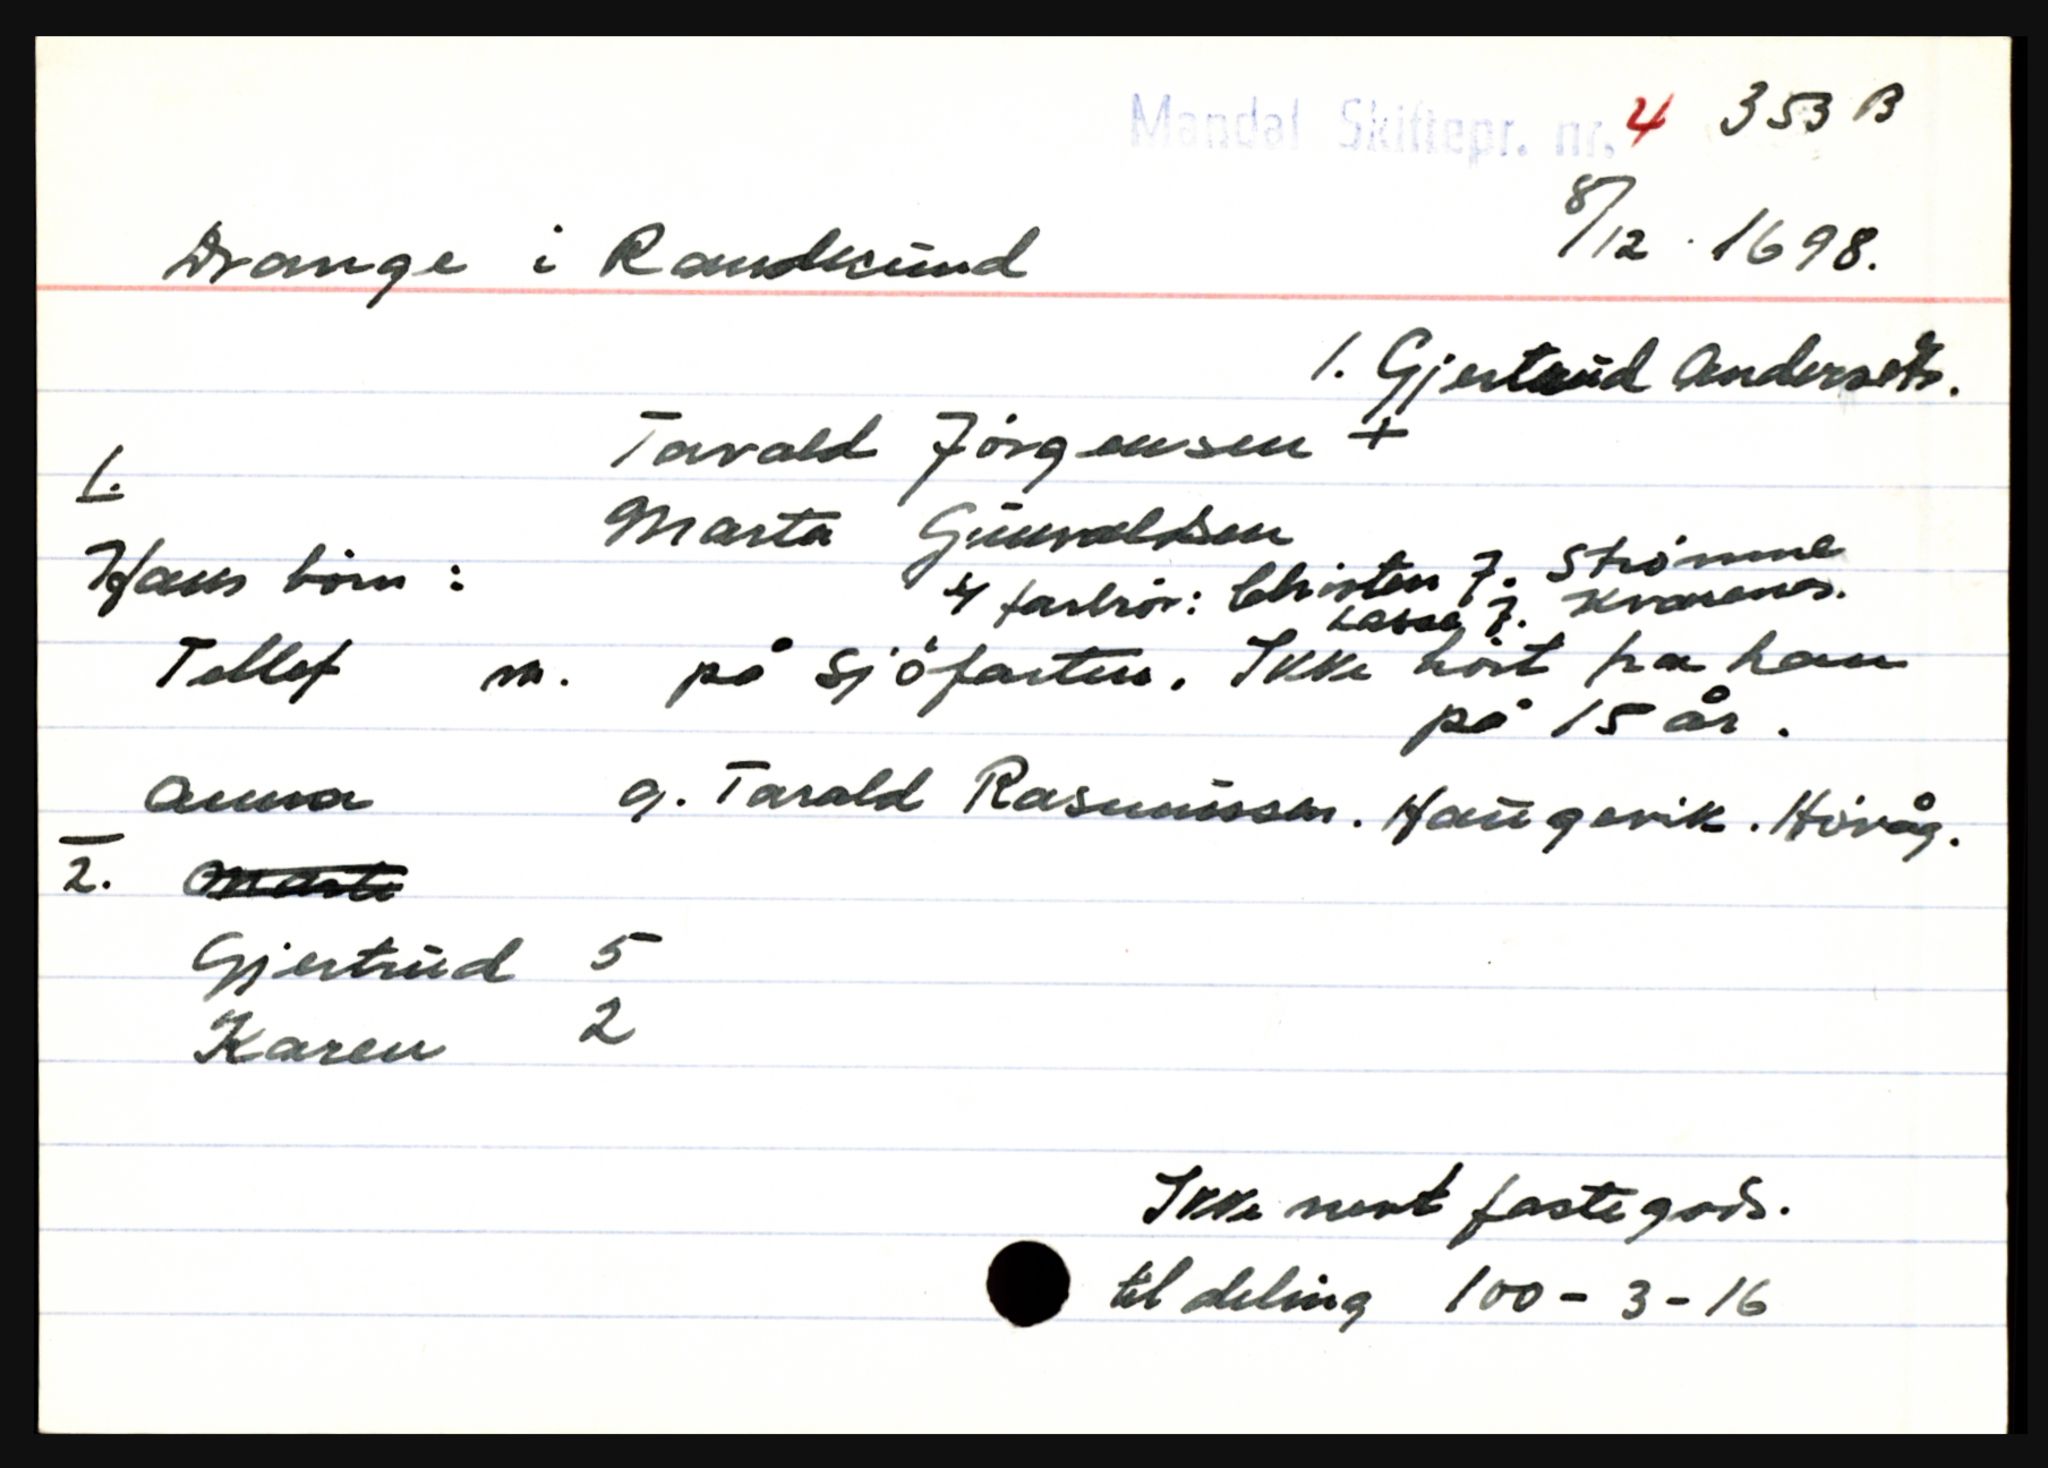 Mandal Skiftepr. nr. 4 353 B
8/12 . 1698.
Drange i Randesund
1. Gjertrud Andersdtr.
Tarald Jörgensen +
1.
Marta Gunvaldsen
Hans börn :
4 farbrör: Christen J. Strömme
Lasse J. Kvarenes.
Tellef m. på Sjöfarten. Ikke hört fra han
på 15 år .
Anna g. Tarald Rasmussen. Haugevik. Hövåg.
2. Marte
Gjertrud 5
Karen 2
Ikke nevnt fastegods.
til deling 100 - 3 - 16